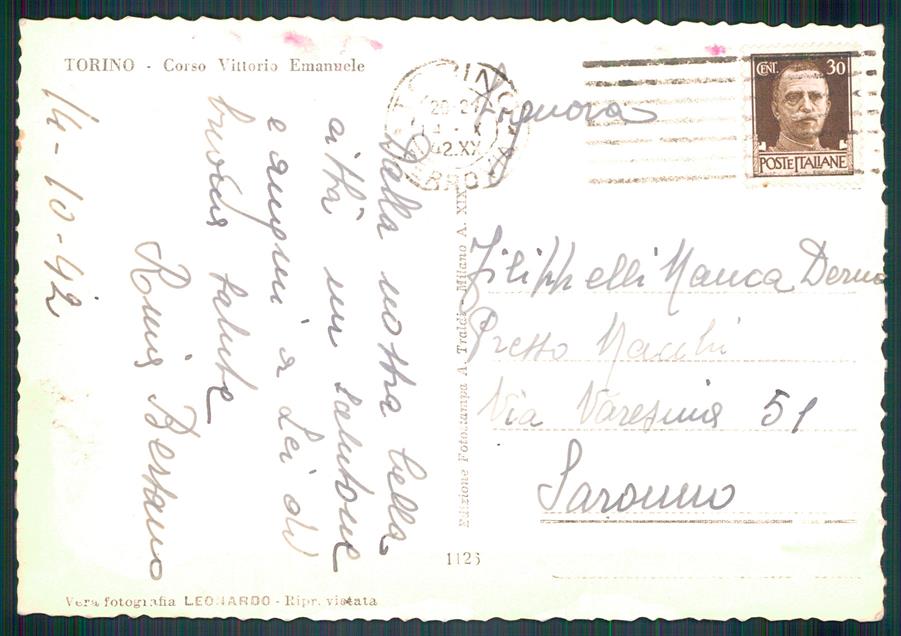 TORINO - Corso Vittorio Emanuele
14-10-42
Dalla nostra bella
città un salutone
e auguri a Lei di
buona salute
Bestano
Vera fotografia LEONARDO - Ripr. vietata
1123
Edizione Fotostampa A. Traldi - Milano A. XIX
TORINO
20-21
14 - X
42.XX
CENT. 30
POSTE ITALIANE
Signora
Filippelli Manca
Presso Macchi
Via Varesina 51
Saronno